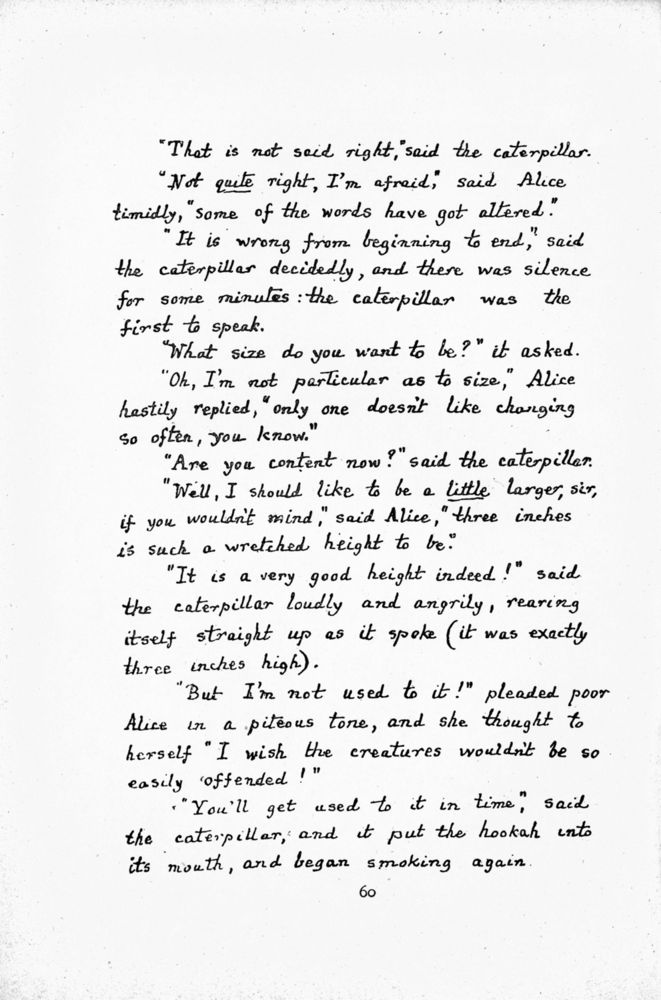 "That is not said right," said the caterpillar.
"Not quite right, I'm afraid," said Alice
timidly, "some of the words have got altered."
"It is wrong from beginning to end," said
the caterpillar decidedly, and there was silence
for some minutes: the caterpillar was the
first to speak.
"What size do you want to be?" it asked.
"Oh, I'm not particular as to size," Alice
hastily replied, "only one doesn't like changing
so often, you know."
"Are you content now?" said the caterpillar.
"Well, I should like to be a little larger, sir,
if you wouldn't mind," said Alice, "three inches
is such a wretched height to be."
"It is a very good height indeed!" said
the caterpillar loudly and angrily, rearing
itself straight up as it spoke (it was exactly
three inches high).
"But I'm not used to it!" pleaded poor
Alice in a piteous tone, and she thought to
herself "I wish the creatures wouldn't be so
easily offended!"
"You'll get used to it in time," said
the caterpillar, and it put the hookah into
its mouth, and began smoking again.
60